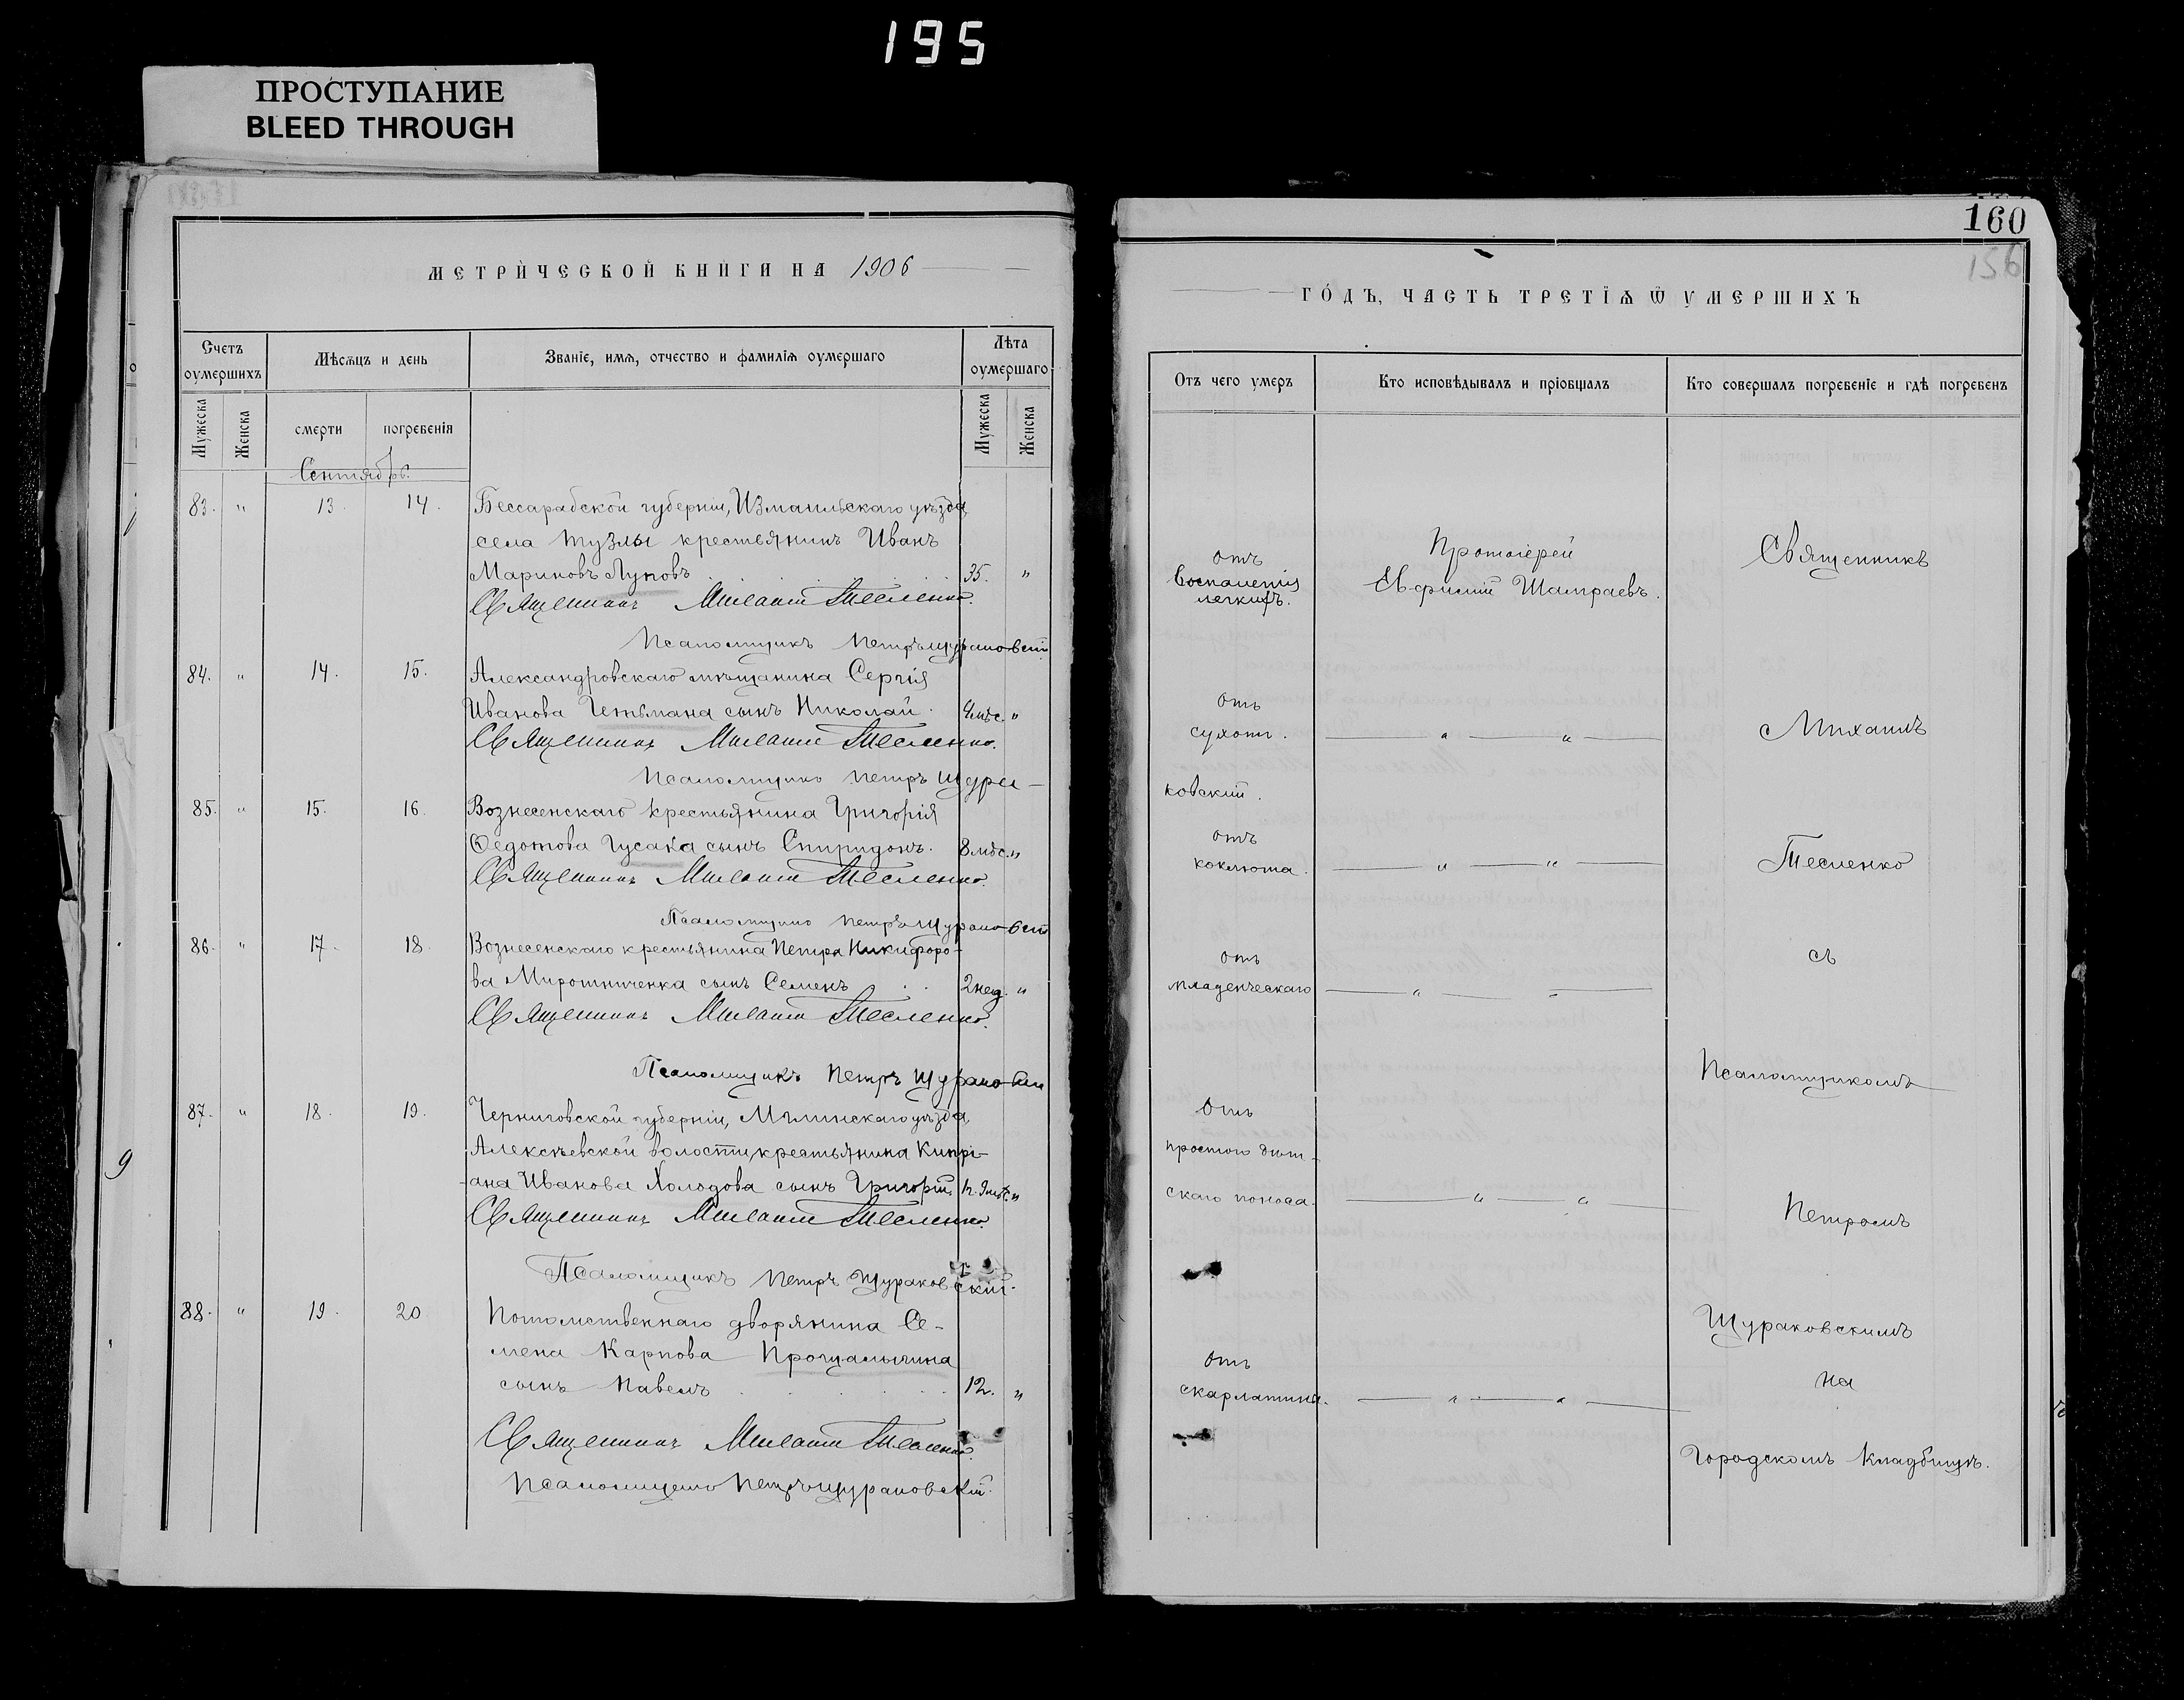 195
ПРОСТУПАНИЕ
BLEED THROUGH
МЕТРИЧЕСКОЙ КНИГИ НА 1906
Счетъ оумершихъ
Мѣсяцъ и день
Званіе, имя, отчество и фамилія оумершаго
Лѣта оумершаго
Мужеска
Женска
смерти
погребенія
Мужеска
Женска
Сентябрь.
83. " 13. 14. Бессарабской губерніи, Измаильскаго уѣзда,
села Тузлы крестьянинъ Иванъ
Мариновъ Луповъ 35. "
Священникъ Михаилъ Тесленко.
Псаломщикъ Петръ Щураковскій
84. " 14. 15. Александровскаго мѣщанина Сергія
Иванова Гетьмана сынъ Николай. 4 мѣс. "
Священникъ Михаилъ Тесленко.
Псаломщикъ Петръ Щура-
85. " 15. 16. Вознесенскаго крестьянина Григорія
Ѳедотова Гусака сынъ Спиридонъ. 8 мѣс. "
Священникъ Михаилъ Тесленко.
Псаломщикъ Петръ Щураковскій
86. " 17. 18. Вознесенскаго крестьянина Петра Никифоро-
ва Мирошниченка сынъ Семенъ 2 нед. "
Священникъ Михаилъ Тесленко.
Псаломщикъ Петръ Щураковскій
87. " 18. 19. Черниговской губерніи, Мглинскаго уѣзда,
Алексѣевской волости, крестьянина Кипрі-
-ана Иванова Холодова сынъ Григорій. "
Священникъ Михаилъ Тесленко.
Псаломщикъ Петръ Щураковскій.
88. " 19. 20. Потомственнаго дворянина Се-
мена Карпова
сынъ Павелъ 12. "
Священникъ Михаилъ Тесленко.
Псаломщикъ Петръ Щураковскій.
160
156
ГОДЪ, ЧАСТЬ ТРЕТІЯ Ѿ УМЕРШИХЪ
Отъ чего умеръ
Кто исповѣдывалъ и пріобщалъ
Кто совершалъ погребеніе и гдѣ погребенъ
отъ
воспаленія
легкихъ.
Протоіерей
Евфимій Шамраевъ.
Священникъ
отъ
сухотъ. " "
Михаилъ
ковскій.
отъ
коклюша. " "
Тесленко
отъ
младенческаго " "
съ
Псаломщикомъ
отъ
простого дѣт-
скаго поноса. " "
Петромъ
Щураковскимъ
отъ
скарлатины. " "
на
Городскомъ кладбищѣ.